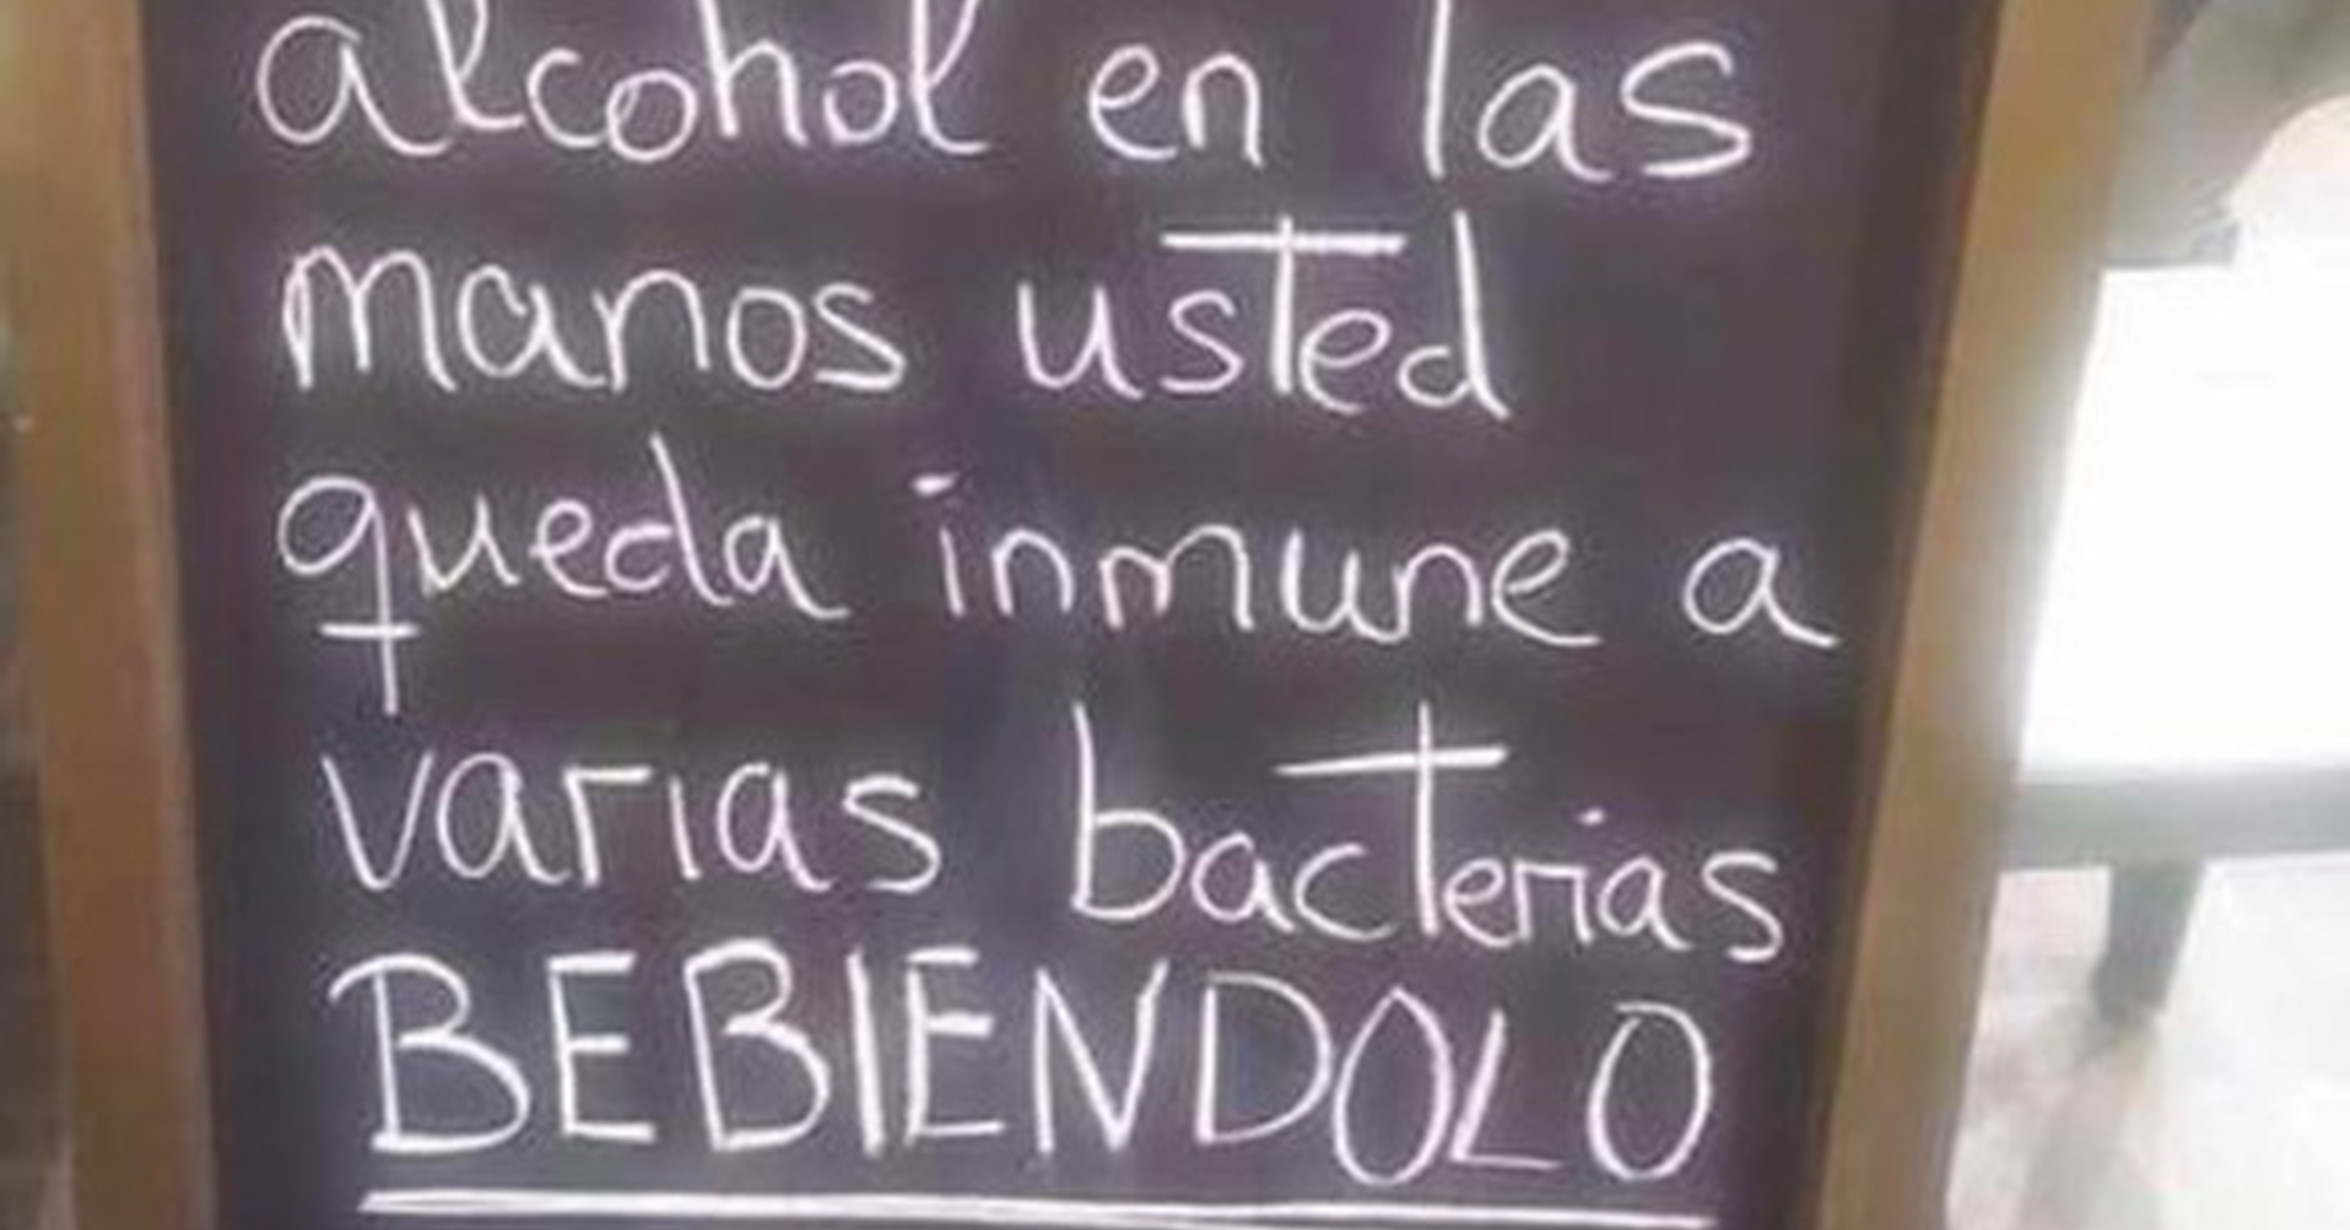 alcohol en las
manos usted
queda inmune a
varias bacterias
BEBIENDOLO